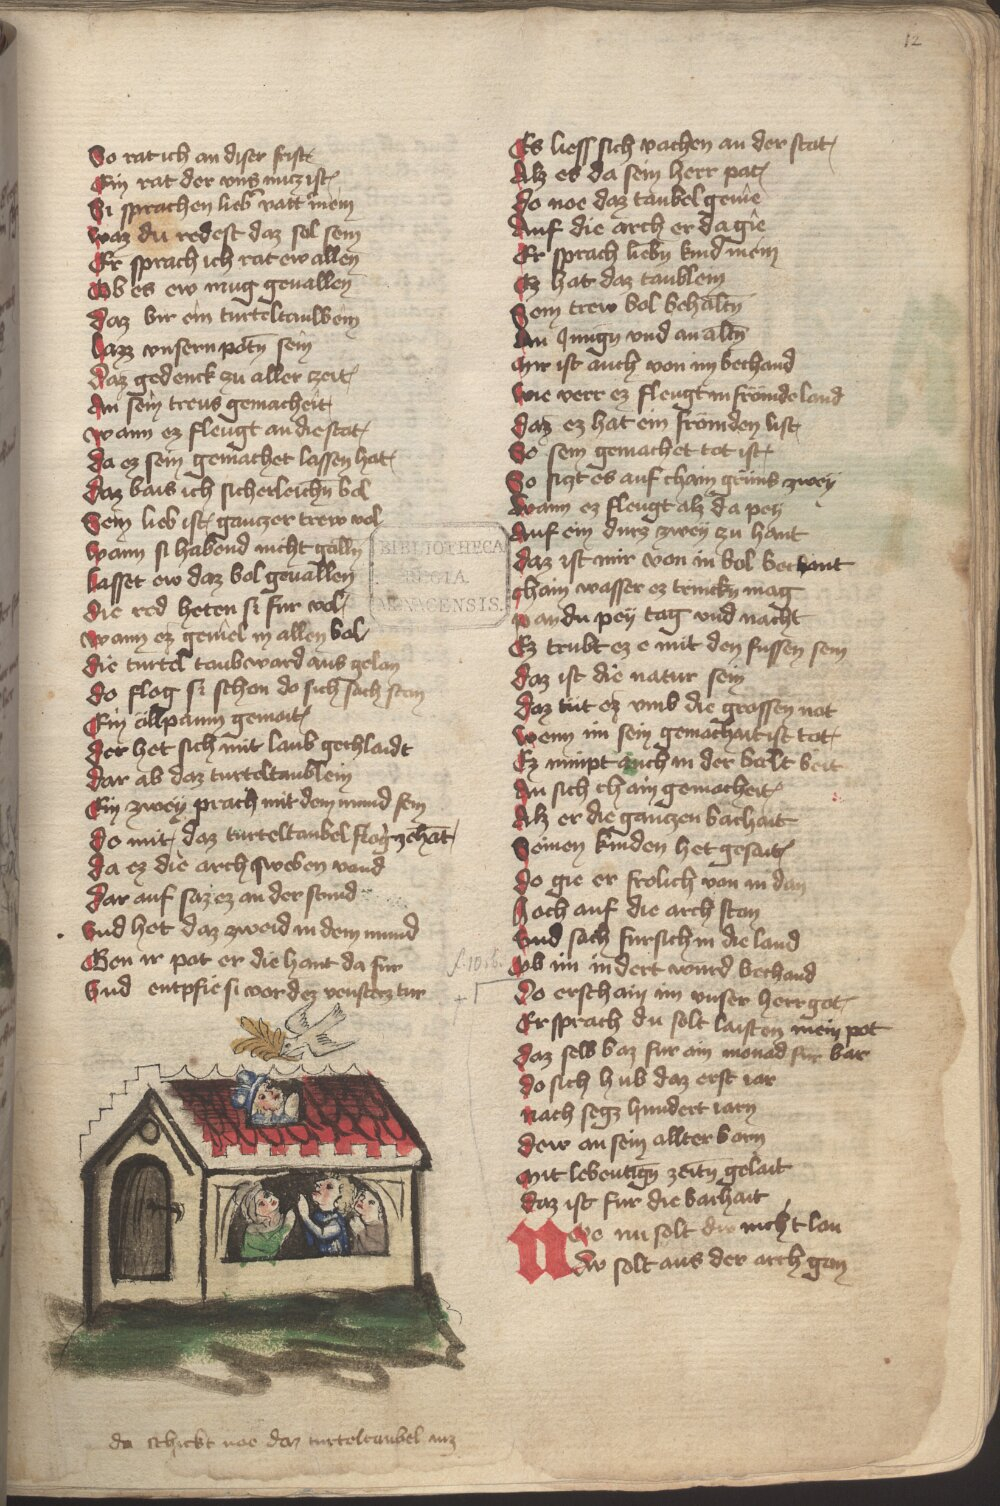 12
So rat ich an diser frist
Ein rat der vns nucz ist
Si sprachen lieb vatt mein
waz du redest daz sol sein
Er sprach ich rat ew allen
Ob es ew mug geuallen
daz bir ein turteltaulbein
lazz vnsern potn sein
daz gedenck zu aller zeit
An sein treus gemacheit
wann ez fleugt an die stat
da ez sein gemachet lassen hat
daz bais ich sicherleichn bol
Sein lieb ist ganczer trew vol
wann si habend nicht galln
lasset ew daz bol geuallen
die red heten si fur vol
wann ez geuiel in allen bol
die turtel taube ward aus gelan
do flog si schon do sich sach stan
Ein ölpaum gemait
der het sich mit laub gechlaidt
dar ab daz turteltaublein
Ein zwey prach mit dem mund sein
do mit daz turteltaubel flog zehant
da ez die arch sweben vand
dar auf saz ez an der stund
vnd het daz zweid in dem mund
Gen ir pot er die hant da fur
vnd entpfie si vor dez venster tur
Es liess sich vachen an der stat
Alz es da sein herr pat
do noe daz taubel genie
Auf die arch er da gie
Er sprach liebn kind mein
Ez hat daz taublein
Sein trew bol behaltn
An jungn vnd an altn
mir ist auch von im bechand
wie verr ez fleugt in frömde land
daz ez hat ein frömden list
So sein gemachet tot ist
So sizt es auf chain grüns zwey
wann ez fleugt alz da pey
Auf ein durz zwey zu hant
daz ist mir von in bol bechant
chain wasser ez trinckn mag
pey tag vnd nacht
Ez trubt ez e mit den fussen sein
daz ist die natur sein
daz tüt ez vmb die grossen not
wenn im sein gemachait ist tot
Ez nimpt auch in der balt beit
An sich chain gemacheit
Alz er die ganczen barhait
Seinen kinden het gesait
do gie er frolich von in dan
hoch auf die arch stan
vnd sach fur sich in die land
Ob im indert wurd bechand
do erschain im vnser herr got
Er sprach du solt laisten mein pot
daz selb baz fur ain monad fur bar
do sich hub daz erst iar
nach segz hundert iarn
dew an sein allter barn
mit lebentign zeitn gelait
daz ist fur die barhait
Noe nu solt du nicht lan
dw solt aus der arch gan
BIBLIOTHECA
REGIA
MONACENSIS.
do schickt noe daz turteltaubel auz